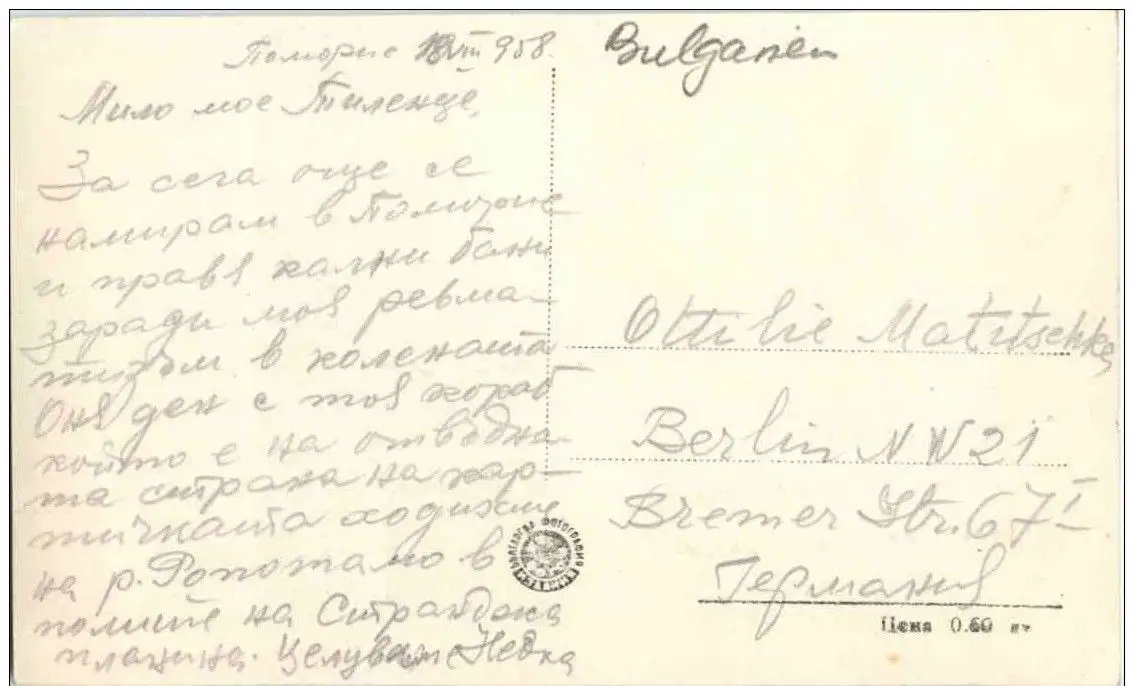 Поморие 18 VIII 958.
Мило мое Тиленце,
За сега още се
намирам в Поморие
и правя калжни бани
заради моя ревма-
тизъм в колената
Оня ден с тоя кораб
който е на отвъдна-
та страна на кар-
тичката ходихме
на р. Ропотамо в
полите на Странджа
планина. Целувам Недка
Bulgarien
Ottilie Matutschka
Berlin NW 21
Bremer Str. 67 I
Германия
Цена 0.60 лв